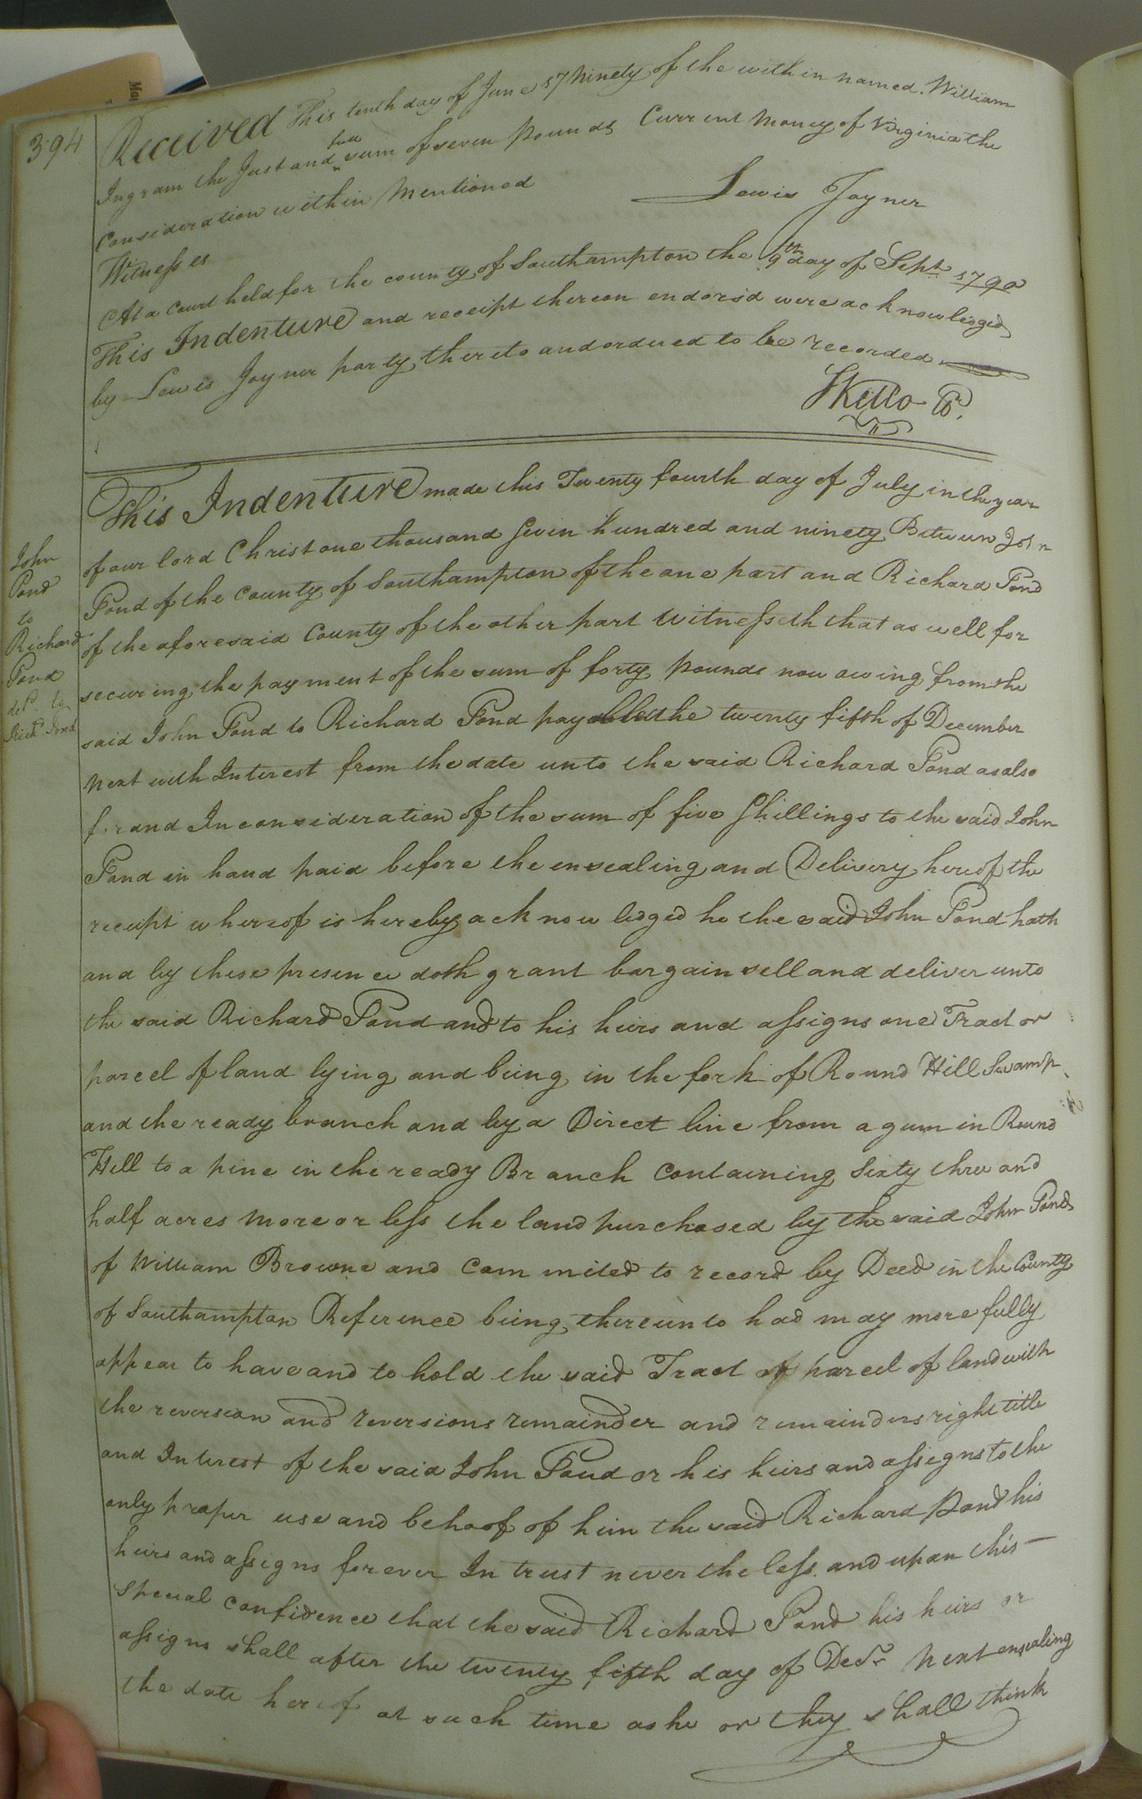 394
Received This tenth day of June 17 Ninety of the within named William
Ingram the Just and full sum of seven Pounds Current Money of Virginia the
Consideration within Mentioned
Lewis Joyner
Witnesses
At a Court held for the county of Southampton the 9th day of Sept. 1790
This Indenture and receipt thereon endorsd were acknowledged
by Lewis Joyner party thereto and ordered to be recorded
Teste
This Indenture made this Twenty fourth day of July in the year
of our lord Christ one thousand Seven Hundred and ninety Between John
Pond of the County of Southampton of the one part and Richard Pond
of the aforesaid County of the other part Witnesseth that as well for
securing the payment of the sum of forty pounds now owing from the
said John Pond to Richard Pond payable the twenty fifth of December
Next with Interest from the date unto the said Richard Pond as also
for and In consideration of the sum of five Shillings to the said John
Pond in hand paid before the ensealing and Delivery hereof the
receipt whereof is hereby acknowledged he the said John Pond hath
and by these presence doth grant bargain sell and deliver unto
the said Richard Pond and to his heirs and assigns one Tract or
parcel of land lying and being in the fork of Round Hill Swamp
and the ready branch and by a Direct line from a gum in Round
Hill to a pine in the ready Branch Containing Sixty three and
half acres More or less the land purchased by the said John Pond
of William Browne and Commited to record by Deed in the County
of Southampton Reference being thereunto had may more fully
appear to have and to hold the said Tract of parcel of land with
the reversion and reversions remainder and remainders right title
and Interest of the said John Pond or his heirs and assigns to the
only proper use and behoof of him the said Richard Pond his
heirs and assigns forever In trust never the less and upon this
Special confidence that the said Richard Pond his heirs or
assigns shall after the twenty fifth day of Decr Next ensealing
the date hereof at such time as he or they shall think
John
Pond
to
Richard
Pond
deld to
Richd Pond